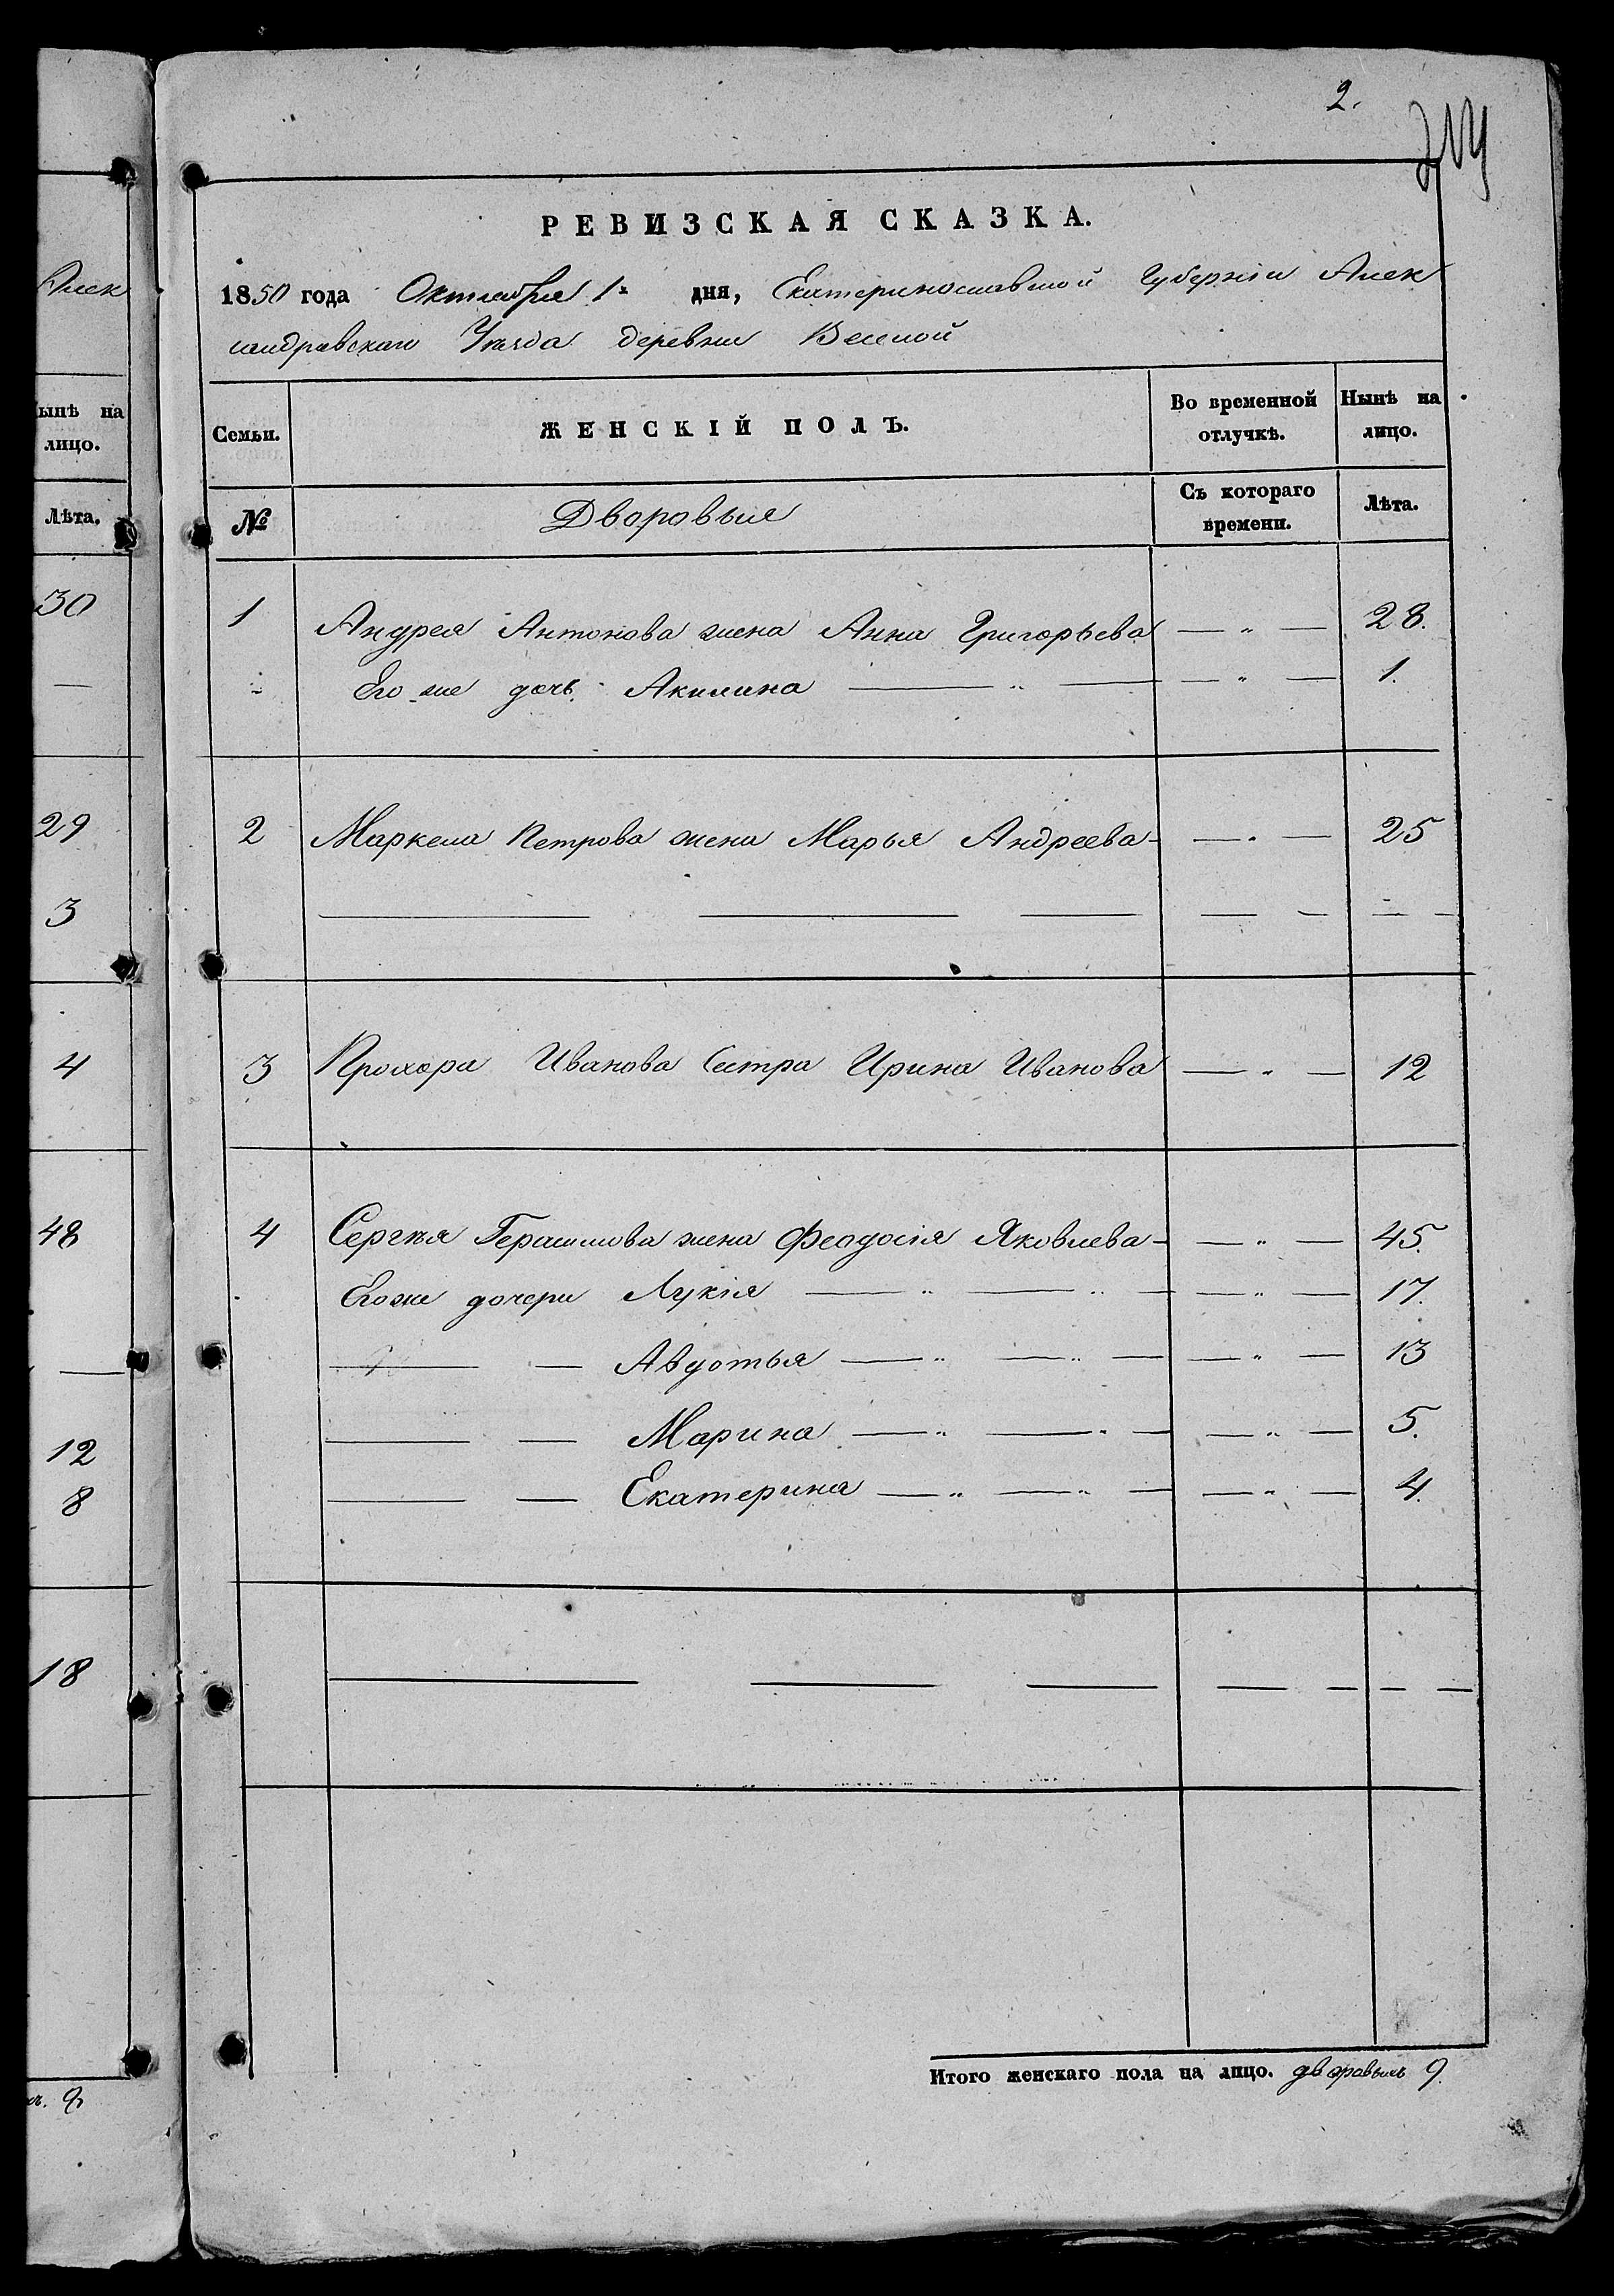 Алек
Нынѣ на
лицо.
Лѣта.
30
29
3
4
48
12
8
18
9
2.
РЕВИЗСКАЯ СКАЗКА.
1850 года Октября 1 дня, Екатеринославской Губерніи Алек
сандравскаго Уѣзда деревни Веселой
Семьи. ЖЕНСКІЙ ПОЛЪ. Во временной отлучкѣ. Нынѣ на лицо.
№ Дворовые Съ котораго времени. Лѣта.
1 Андрея Антонова жена Анна Григорьева — „ — 28.
Его же дочь Акилина — „ — — „ — 1.
2 Маркела Петрова жена Марья Андреева - — „ — 25
3 Прохора Иванова Сестра Ирина Иванова — „ — 12
4 Сергѣя Герасимова жена Феодосія Яковлева - — „ — 45.
Егоже дочери Лукія — „ — „ — — „ — 17.
— — Авдотья — „ — „ — — „ — 13
— — Марина — „ — „ — — „ — 5.
— — Екатерина — „ — „ — — „ — 4.
Итого женскаго пола на лицо. дворавыхъ 9.